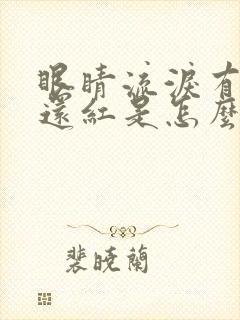 眼睛流淚有
還紅是怎麼
裴曉蘭